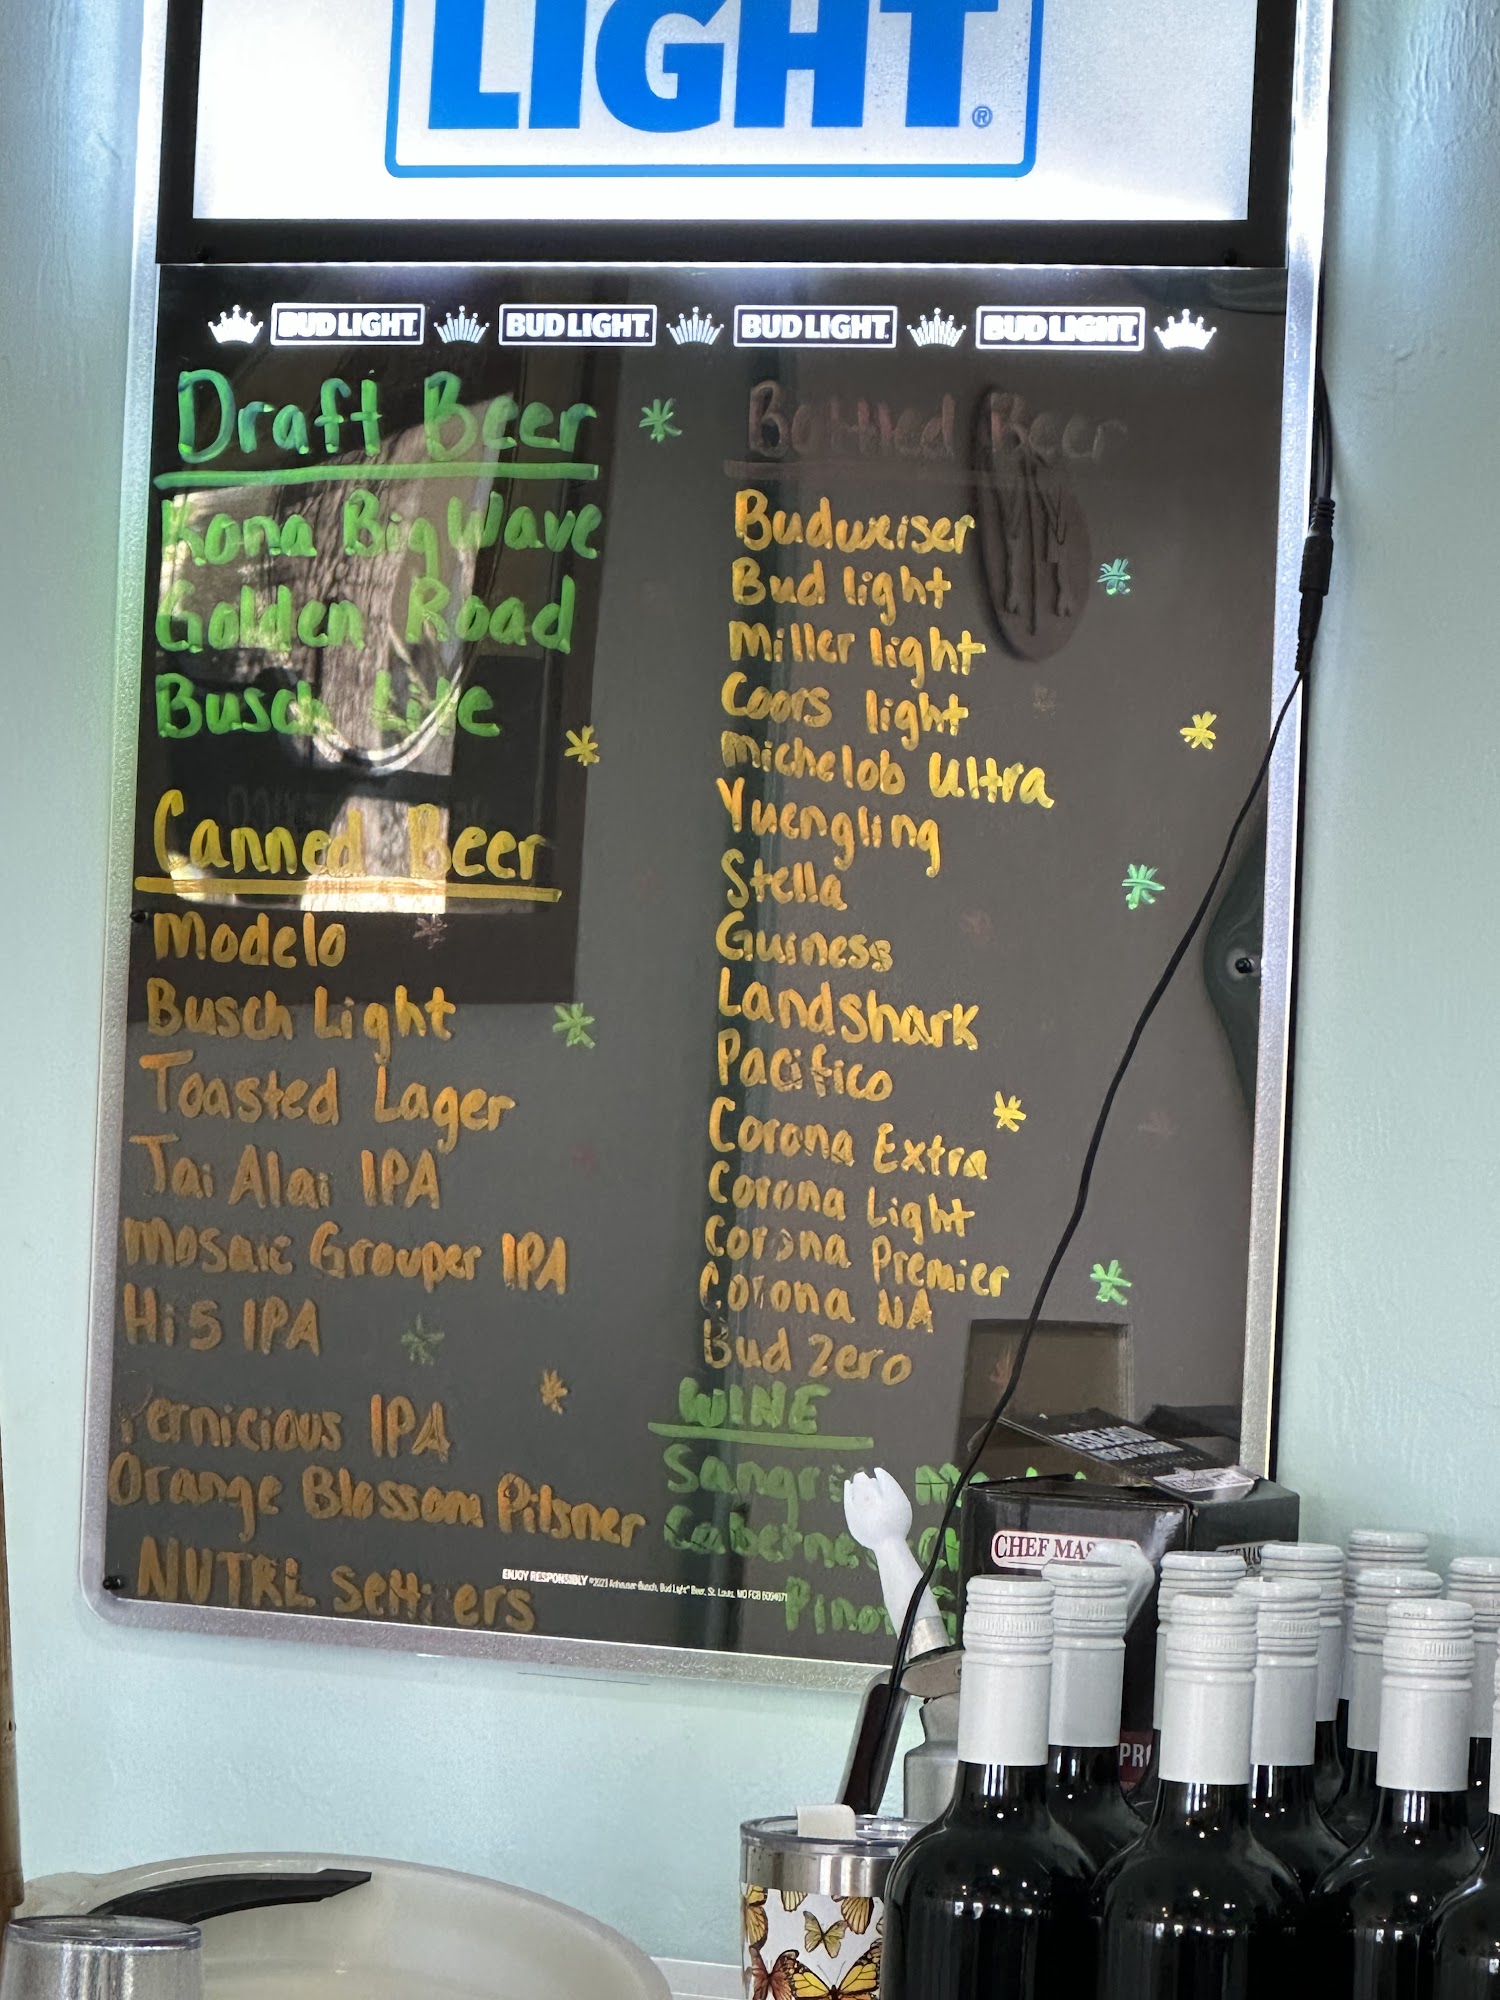 LIGHT®
BUD LIGHT. BUD LIGHT. BUD LIGHT. BUD LIGHT.
Draft Beer
Kona Big Wave
Golden Road
Busch Lite
Canned Beer
Modelo
Busch Light
Toasted Lager
Jai Alai IPA
Mosaic Grouper IPA
Hi 5 IPA
Pernicious IPA
Orange Blossom Pilsner
NUTRL
Bottled Beer
Budweiser
Bud light
Miller light
Coors light
Michelob Ultra
Yuengling
Stella
Guinness
Landshark
Pacifico
Corona Extra
Corona Light
Corona Premier
Corona NA
Bud Zero
WINE
ENJOY RESPONSIBLY
CHEF MAS
PR